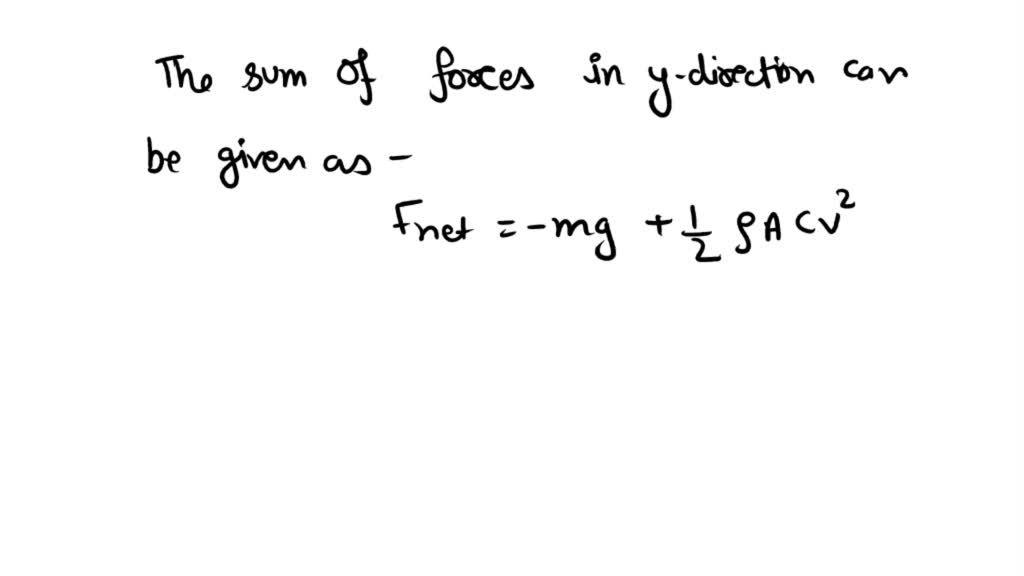 The sum of forces in y-direction can
be given as -
Fnet = -mg + 1/2 ρACv²